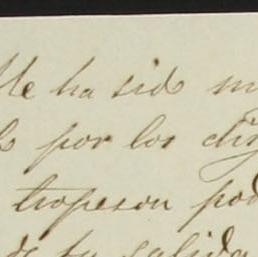 Me ha sido
por los
tropeson pod
de tu salida